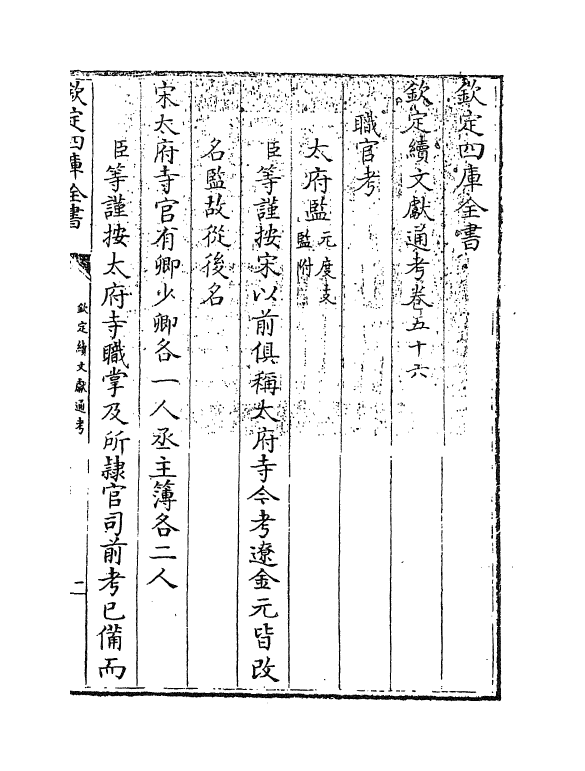 欽定四庫全書
欽定續文獻通考卷五十六
職官考
太府監元度支監附
臣等謹按宋以前俱稱太府寺今考遼金元皆改
名監故從後名
宋太府寺官有卿少卿各一人丞主簿各二人
臣等謹按太府寺職掌及所隷官司前考已備而
欽定四庫全書
欽定續文獻通考